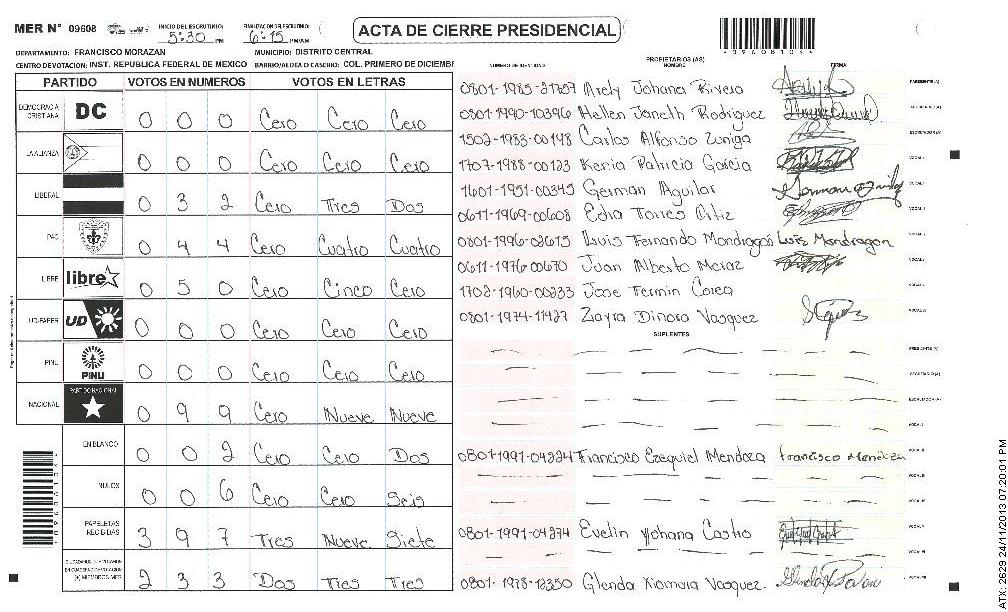 MER N° 09608 INICIO DEL ESCRUTINIO: 5:30 PM FINALIZACION DEL ESCRUTINIO: 6:15 PM/AM ACTA DE CIERRE PRESIDENCIAL
DEPARTAMENTO: FRANCISCO MORAZAN MUNICIPIO: DISTRITO CENTRAL
CENTRO DE VOTACION: INST. REPUBLICA FEDERAL DE MEXICO BARRIO/ALDEA O CASERIO: COL. PRIMERO DE DICIEMB
PARTIDO VOTOS EN NUMEROS VOTOS EN LETRAS
DEMOCRACIA CRISTIANA DC 0 0 0 Cero Cero Cero
LA ALIANZA 0 0 0 Cero Cero Cero
LIBERAL 0 3 2 Cero Tres Dos
PAC 0 4 4 Cero Cuatro Cuatro
LIBRE libre 0 5 0 Cero Cinco Cero
UD-FAPER UD 0 0 0 Cero Cero Cero
PINU PINU 0 0 0 Cero Cero Cero
NACIONAL PARTIDO NACIONAL 0 9 9 Cero Nueve Nueve
EN BLANCO 0 0 2 Cero Cero Dos
NULOS 0 0 6 Cero Cero Seis
PAPELETAS RECIBIDAS 3 9 7 Tres Nueve Siete
CIUDADANOS DE VOTANTES EN CUADERNO DE VOTACION (+) MIEMBROS MER 2 3 3 Dos Tres Tres
PROPIETARIOS (AS)
NUMERO DE IDENTIDAD NOMBRE FIRMA
0801-1985-21757 Arely Johana Rivera PRESIDENTE (A)
0801-1990-10396 Hellen Janeth Rodriguez SECRETARIO (A)
1502-1983-00148 Carlos Alfonso Zuniga ESCRUTADOR (A)
1707-1988-00123 Kenia Patricia Garcia VOCAL I
1601-1951-00345 German Aguilar German Aguilar
0611-1969-00608 Edia Torres Ortiz
0801-1996-02615 Lluis Fernando Mondragos Luis Mondragon
0611-1976-00670 Juan Alberto Meraz
1702-1960-00233 Jose Fermin Corea
0801-1974-11427 Zayra Dinora Vasquez
SUPLENTES
PRESIDENTE (A)
SECRETARIO (A)
ESCRUTADOR (A)
0801-1991-04224 Francisco Ezequiel Mendoza Francisco Mendoza
0801-1991-04274 Evelin Yohana Castro
0801-1978-12350 Glenda Xiomara Vasquez.
ATX-2629 24/11/2013 07:20:01 PM